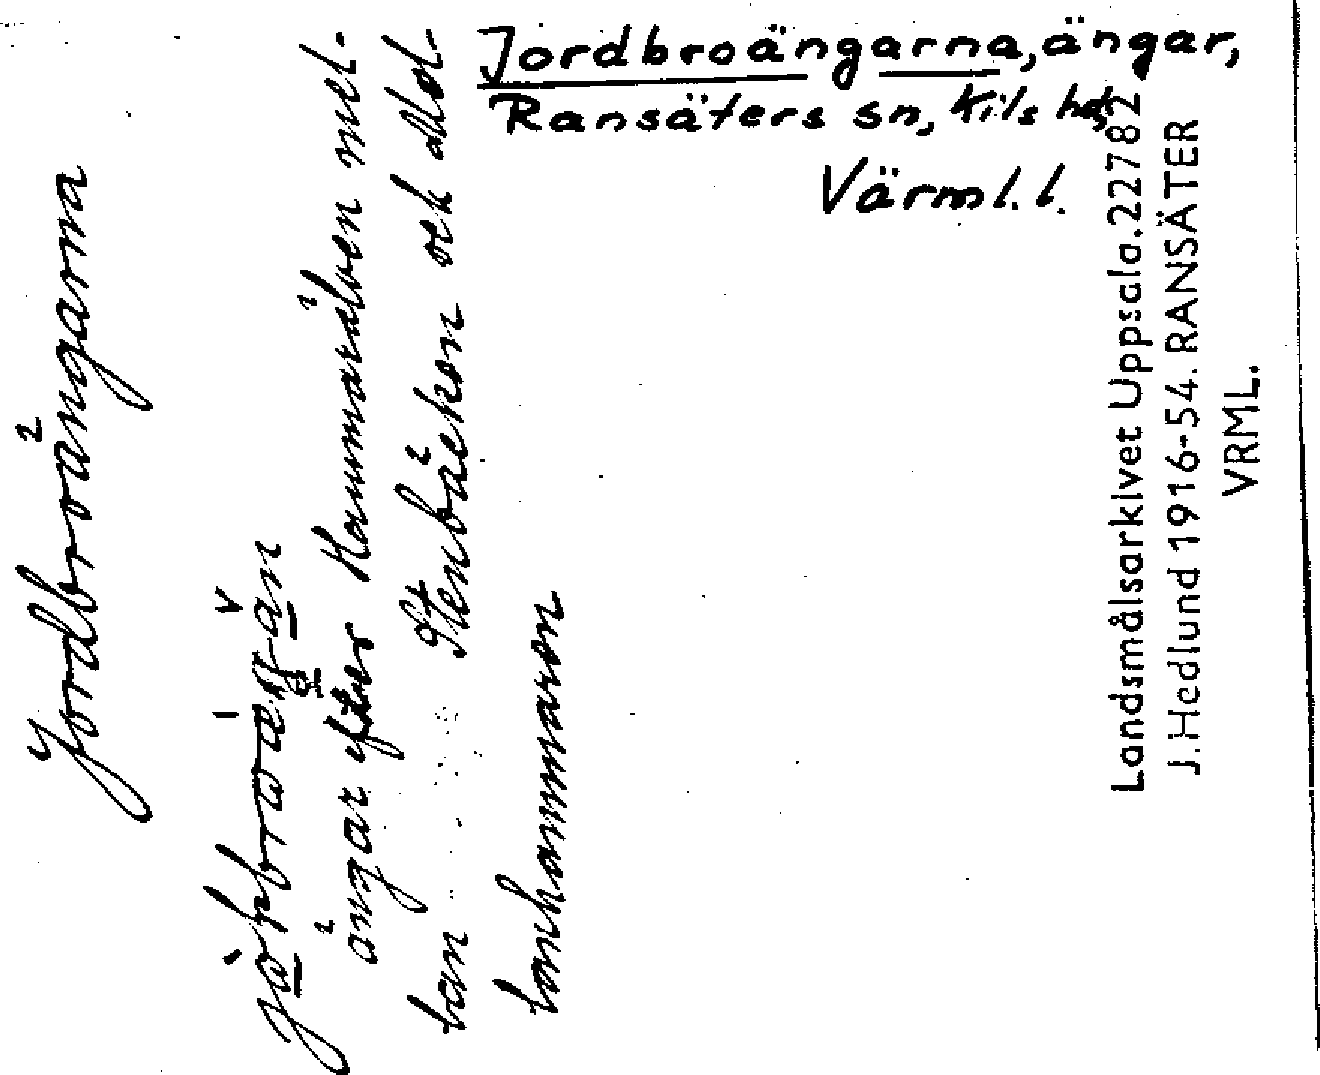 Jordbroängarna, ängar,
Ransäters sn, Kils hd,
Värml. l.
Jordbroängarna
ängar efter Hammarälven mel-
lan Stenbäcken och
Landsmålsarkivet Uppsala. 22782
J. Hedlund 1916-54. RANSÄTER
VRML.